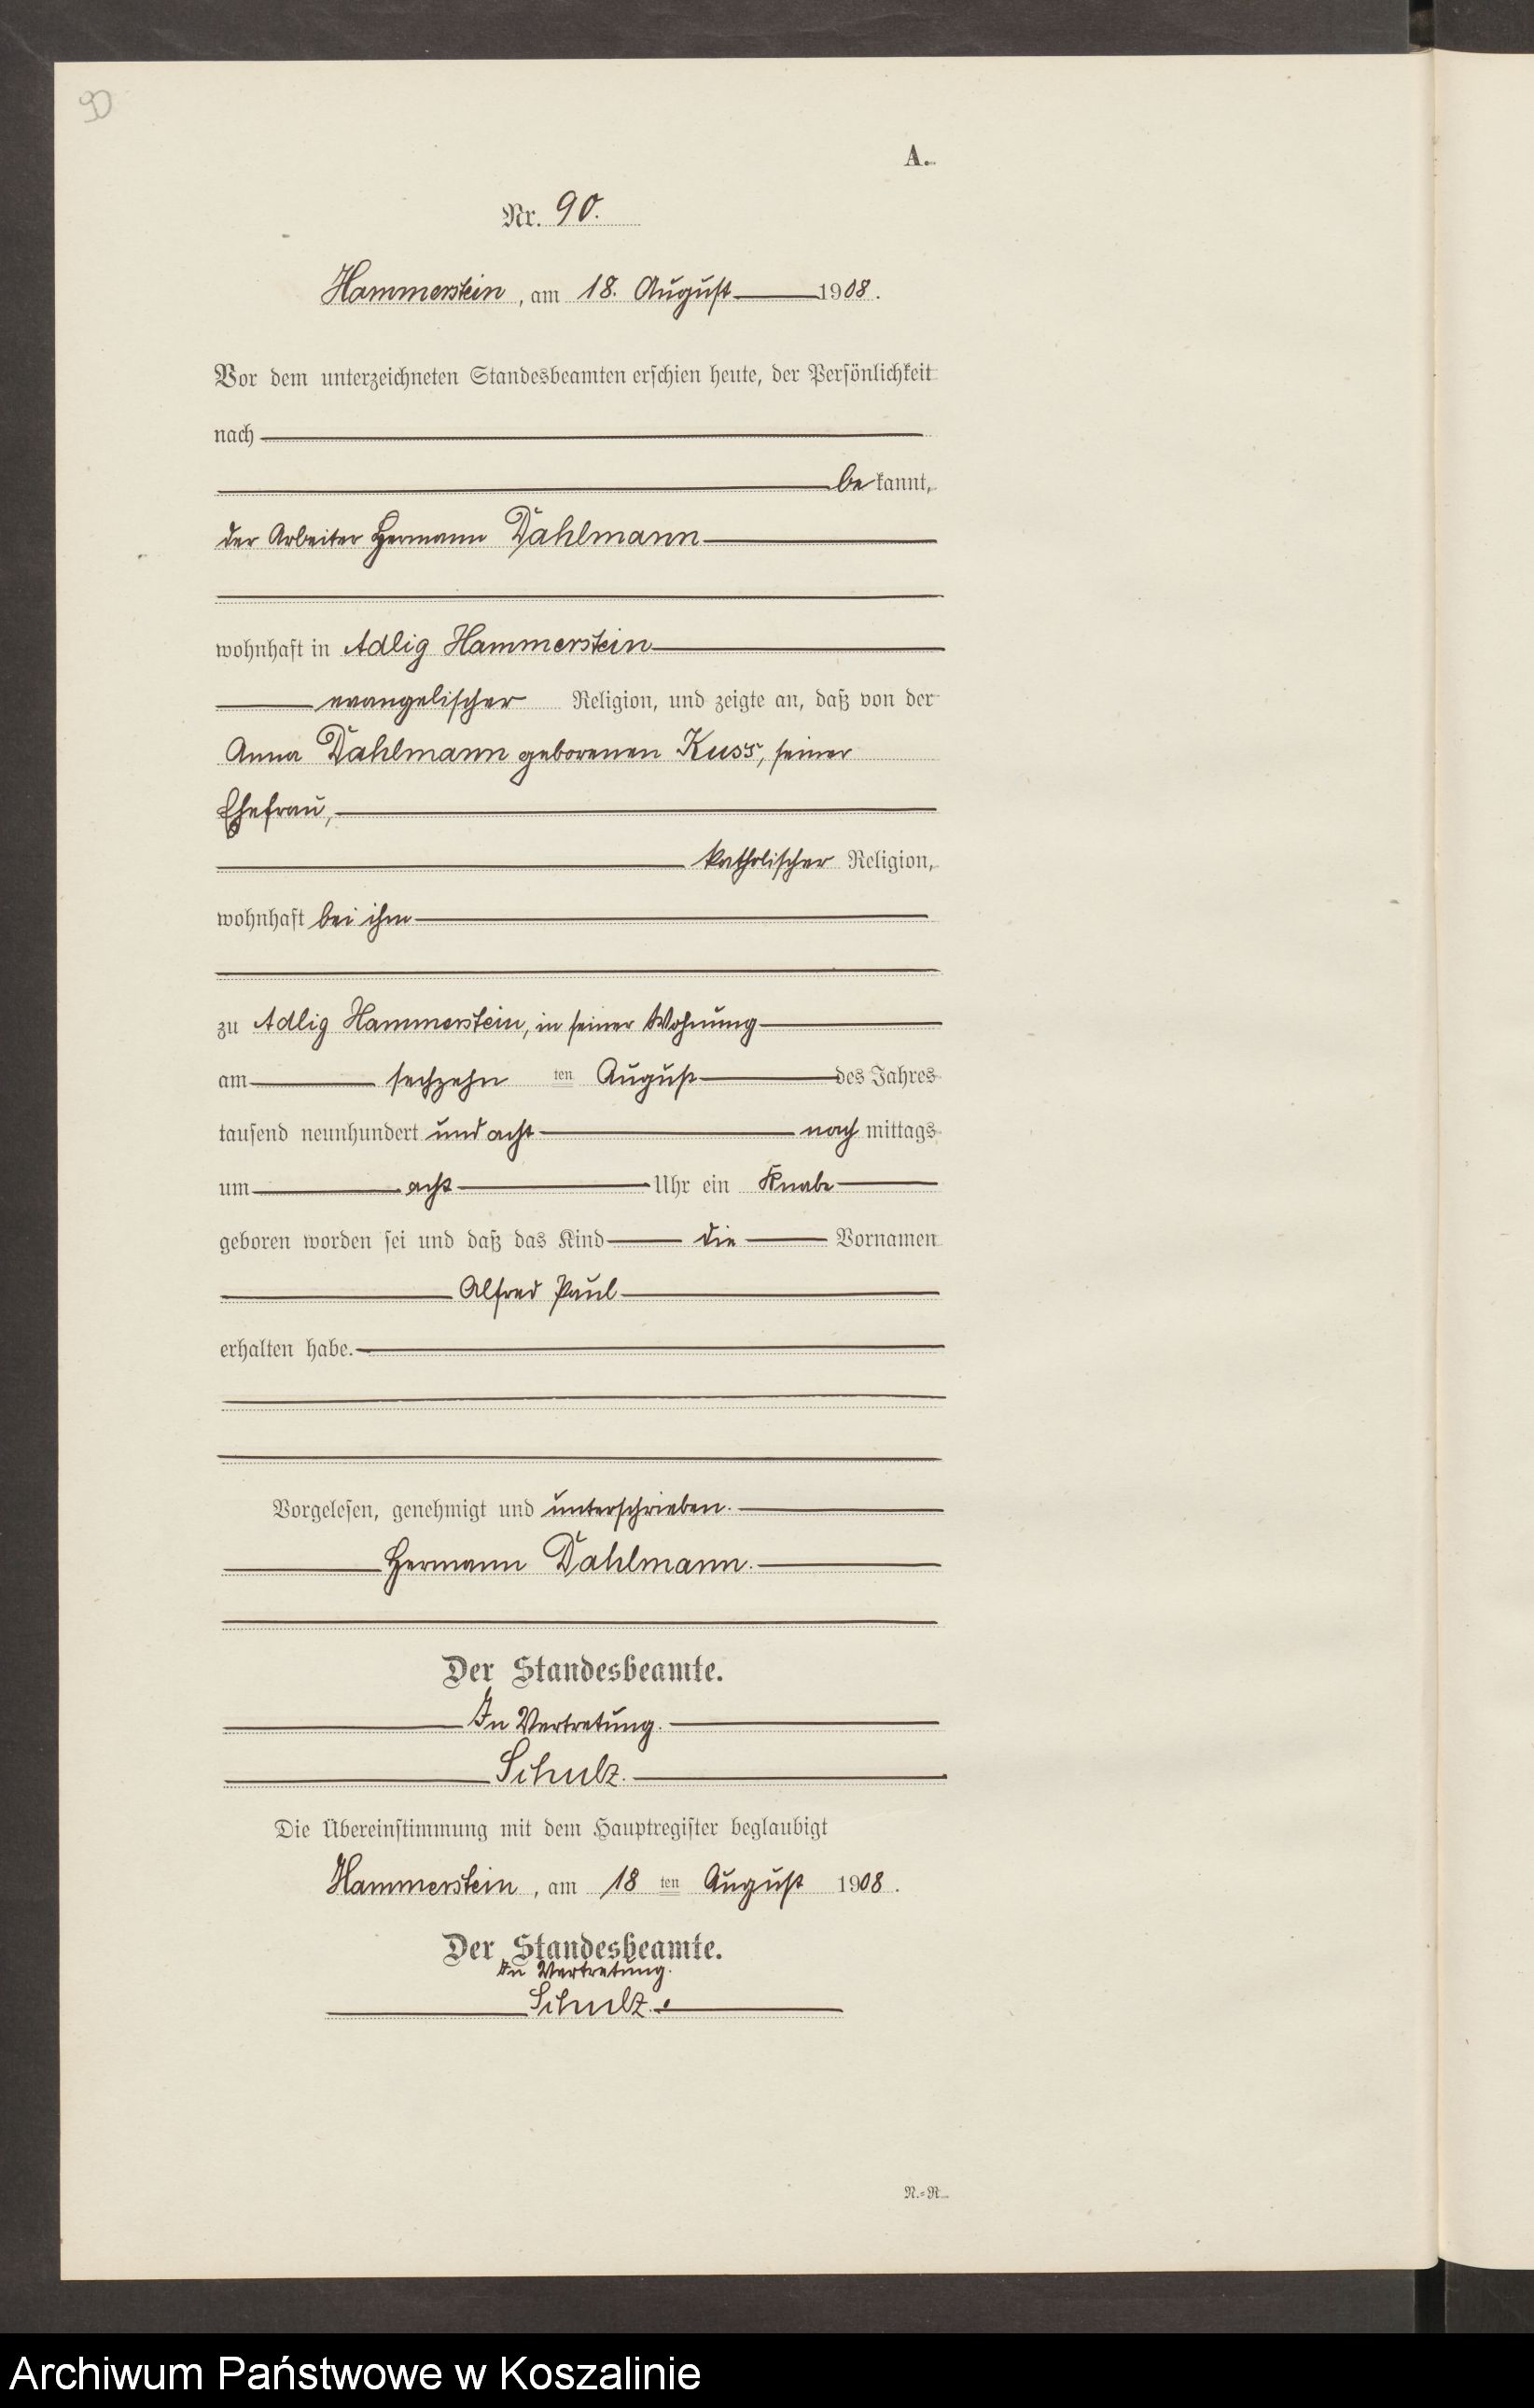 90
A.
Nr. 90.
Hammerstein, am 18. August 1908.
Vor dem unterzeichneten Standesbeamten erschien heute, der Persönlichkeit
nach
be kannt,
der Arbeiter Hermann Dahlmann
wohnhaft in Adlig Hammerstein
evangelischer Religion, und zeigte an, daß von der
Anna Dahlmann geborenen Kuss, seiner
Ehefrau,
katholischer Religion,
wohnhaft bei ihm
zu Adlig Hammerstein, in seiner Wohnung
am sechzehn ten August des Jahres
tausend neunhundert und acht nach mittags
um acht Uhr ein Knabe
geboren worden sei und daß das Kind die Vornamen
Alfred Paul
erhalten habe.
Vorgelesen, genehmigt und unterschrieben.
Hermann Dahlmann.
Der Standesbeamte.
In Vertretung.
Schulz.
Die Übereinstimmung mit dem Hauptregister beglaubigt
Hammerstein, am 18 ten August 1908.
Der Standesbeamte.
In Vertretung.
Schulz.
N.=R.
Archiwum Państwowe w Koszalinie